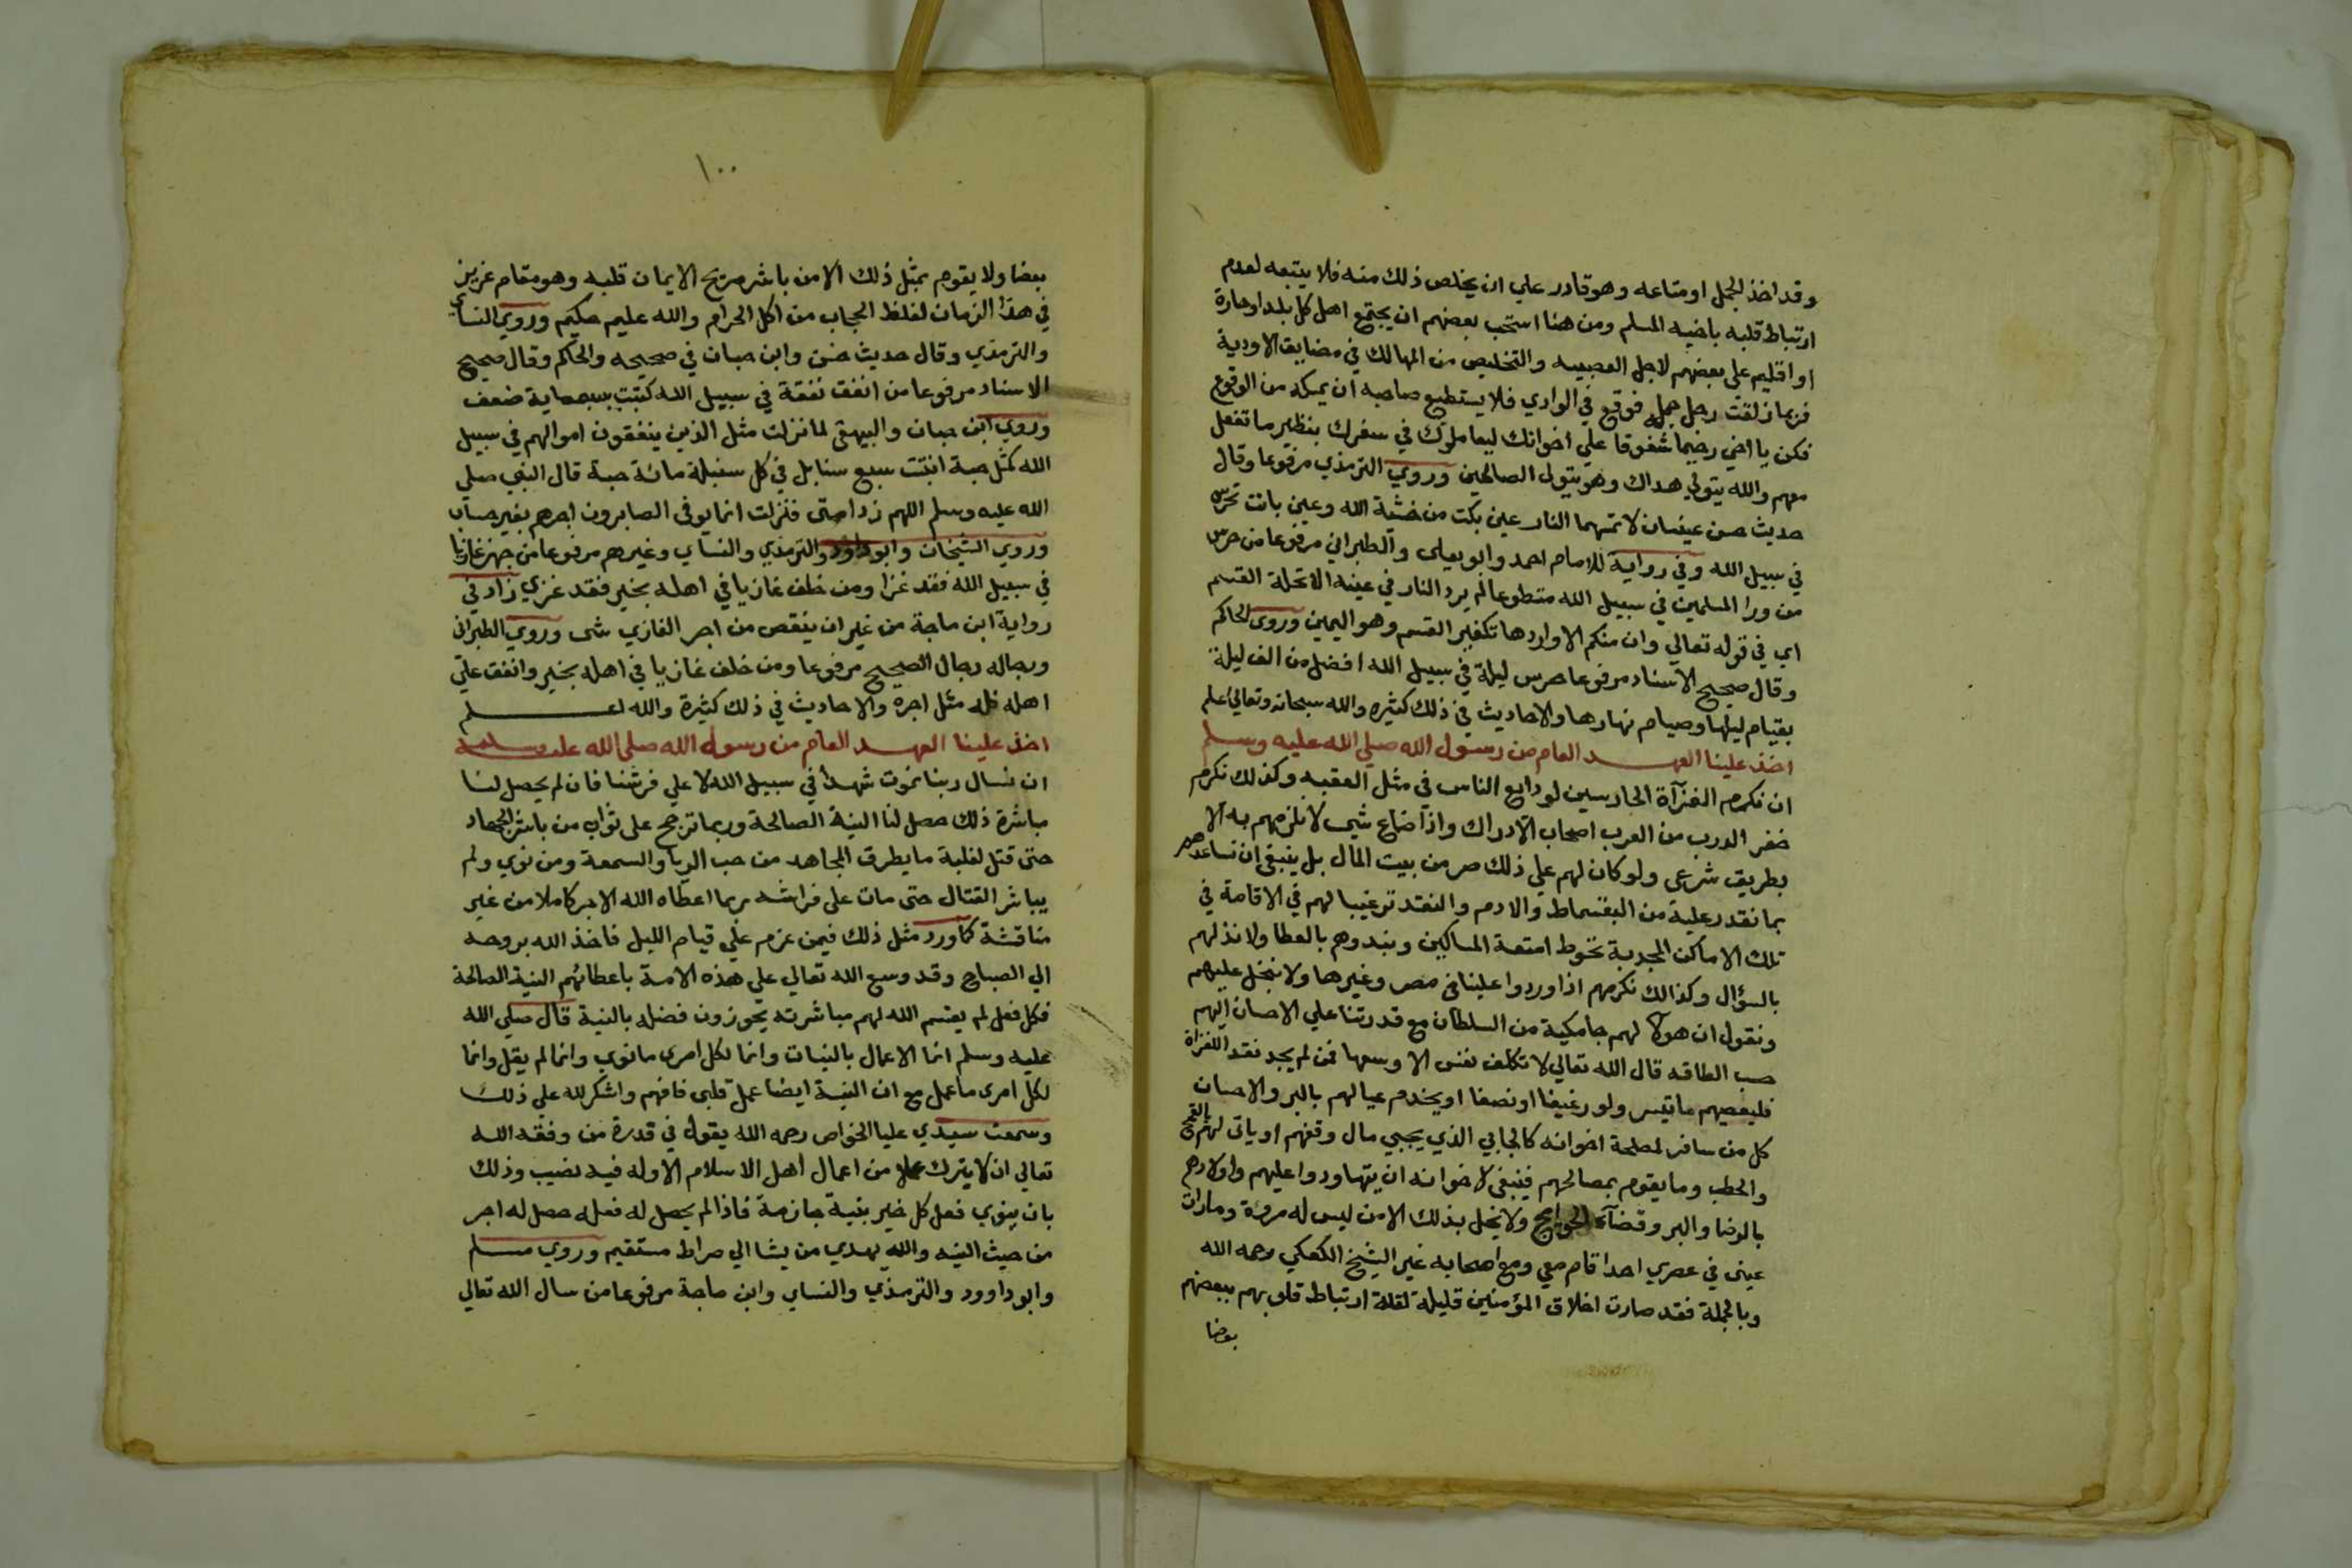 وقد اخذ الجمل او متاعه وهو قادر علي ان يخلص ذلك منه فلا يتبعه لعدم
ارتباط قلبه باخيه المسلم ومن هنا استحب بعضهم ان يجتمع اهل كل بلد او حارة
او اقليم علي بعضهم لاجل العصبيه والتخليص من المهالك في مضايق الاودية
فربما زلقت رجل جمل فوقع في الوادي فلا يستطيع صاحبه ان يمسكه من الوقوع
فكن يا اخي رحيما شفوقا علي اخوانك ليعاملوك في سفرك بنظير ما تفعل
معهم والله يتولي هداك وهو يتولى الصالحين وروي الترمذي مرفوعا وقال
حديث حسن عينان لا تمسهما النار عين بكت من خشية الله وعين باتت تحرس
في سبيل الله وفي رواية للامام احمد وابو يعلى والطبراني مرفوعا من حرس
من ورا المسلمين في سبيل الله متطوعا لم يرد النار في عينه الا تحلة القسم
اي في قوله تعالي وان منكم الا واردها تكفير القسم وهو اليمين وروى الحاكم
وقال صحيح الاسناد مرفوعا حرس ليلة في سبيل الله افضل من الف ليلة
بقيام ليلها وصيام نهارها والاحاديث في ذلك كثيره والله سبحانه وتعالي اعلم
اخذ علينا العهد العام من رسول الله صلي الله عليه وسلم
ان نكرم الغزآة الحارسين لودايع الناس في مثل العقبه وكذلك نكرم
خفر الدرب من العرب اصحاب الادراك واذا ضاع شي لا نلزمهم به الا
بطريق شرعي ولو كان لهم علي ذلك صر من بيت المال بل ينبغي ان نساعدهم
بما نقدر علية من البقسماط والادم والنقد ترغيبا لهم في الاقامة في
تلك الاماكن المجدبة تحوط امتعة المساكين ونبدوهم بالعطا ولا نذلهم
بالسؤال وكذالك نكرمهم اذا وردوا علينا في مصر وغيرها ولا نبخل عليهم
ونقول ان هولا لهم جامكية من السلطان مع قدرتنا علي الاحسان اليهم
حسب الطاقه قال الله تعالي لا تكلف نفس الا وسعها فمن لم يجد نقد اللغزاة
فليعطيهم ما تيسر ولو رغيفا او نصفا او يخدم عيالهم بالبر والاحسان
كل من سافر لمصلحة اخوانه كالجابي الذي يجبي مال وقفهم او ياتي لهم بالقمح
والحطب وما يقوم بمصالحهم فينبغي لاخوانه ان يتهاودوا عليهم واولادهم
بالرضا والبر وقضآء الحوايج ولا يخل بذلك الا من ليس له مروءة وما رات
عينى في عصري احدا قام معي ومع اصحابه غير الشيخ الكعكي رحمه الله
وبالجملة فقد صارت اخلاق المؤمنين قليلة لقلة ارتباط قلوبهم ببعضهم
بعضا
١٠٠
بعضا ولا يقوم بمثل ذلك الا من باشر صريح الايمان قلبه وهو مقام عزيز
في هذا الزمان لغلظ الحجاب من اكل الحرام والله عليم حكيم وروي النساي
والترمذي وقال حديث حسن وابن حبان في صحيحه والحاكم وقال صحيح
الاسناد مرفوعا من انفق نفقة في سبيل الله كتبت بسبعماية ضعف
وروي ابن حبان والبيهقي لما نزلت مثل الذين ينفقون اموالهم في سبيل
الله كمثل حبة انبتت سبع سنابل في كل سنبلة مائة حبة قال النبي صلى
الله عليه وسلم اللهم زد امتى فنزلت انما يوفى الصابرون اجرهم بغير حساب
وروي الشيخان وابو داود والترمذي والنساي وغيرهم مرفوعا من جهز غازيا
في سبيل الله فقد غزا ومن خلف غازيا في اهله بخير فقد غزي زاد في
رواية ابن ماجة من غير ان ينقص من اجر الغازي شي وروي الطبراني
ورجاله رجال الصحيح مرفوعا ومن خلف غازيا في اهله بخير وانفق علي
اهله فله مثل اجره والاحاديث في ذلك كثيرة والله اعلم
اخذ علينا العهد العام من رسول الله صلى الله عليه وسلم
ان نسال ربنا نموت شهدا في سبيل الله لا علي فرشنا فان لم يحصل لنا
مباشرة ذلك حصل لنا النية الصالحة وربما ترجح على ثواب من باشر الجهاد
حتى قتل لغلبة ما يطرق المجاهد من حب الريا والسمعة ومن نوي ولم
يباشر القتال حتى مات على فراشه ربما اعطاه الله الاجر كاملا من غير
مناقشة كما ورد مثل ذلك فيمن عزم علي قيام الليل فاخذ الله بروحه
الي الصباح وقد وسع الله تعالي علي هذه الامة باعطائهم النية الصالحة
فكل فعل لم يقسم الله لهم مباشرته يحوزون فضله بالنية قال صلي الله
عليه وسلم انما الاعمال بالنيات وانما لكل امرى ما نوي وانما لم يقل وانما
لكل امرى ما عمل مع ان النية ايضا عمل قلبى فافهم واشكر لله علي ذلك
وسمعت سيدي عليا الخواص رحمه الله يقول في قدرة من وفقه الله
تعالي ان لا يترك عملا من اعمال اهل الاسلام الا وله فيه نصيب وذلك
بان ينوي فعل كل خير بنية جازمة فاذا لم يحصل له فعله حصل له اجر
من حيث النيه والله يهدي من يشا الي صراط مستقيم وروي مسلم
وابو داوود والترمذي والنساى وابن ماجة مرفوعا من سال الله تعالي